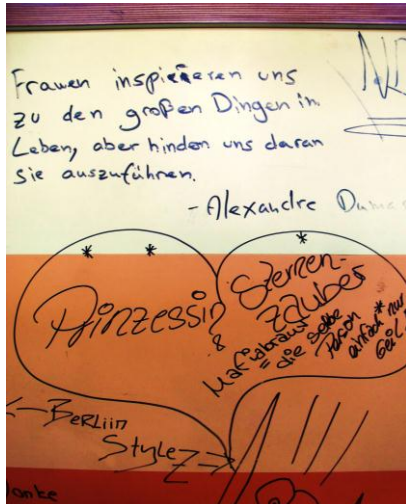 Frauen inspirieren uns
zu den großen Dingen in
Leben, aber hinden uns daran
sie auszuführen.
- Alexandre Dumas
* * *
Prinzessin
&
Sternen-
zauber
Mafiabraut
= die selbe
Person
einfach* nur
Geil!
<— BERLiin
Stylez =>
Danke